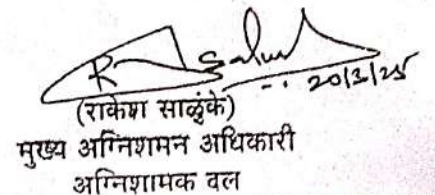 20/3/25
(राकेश साळुंके)
मुख्य अग्निशमन अधिकारी
अग्निशामक दल